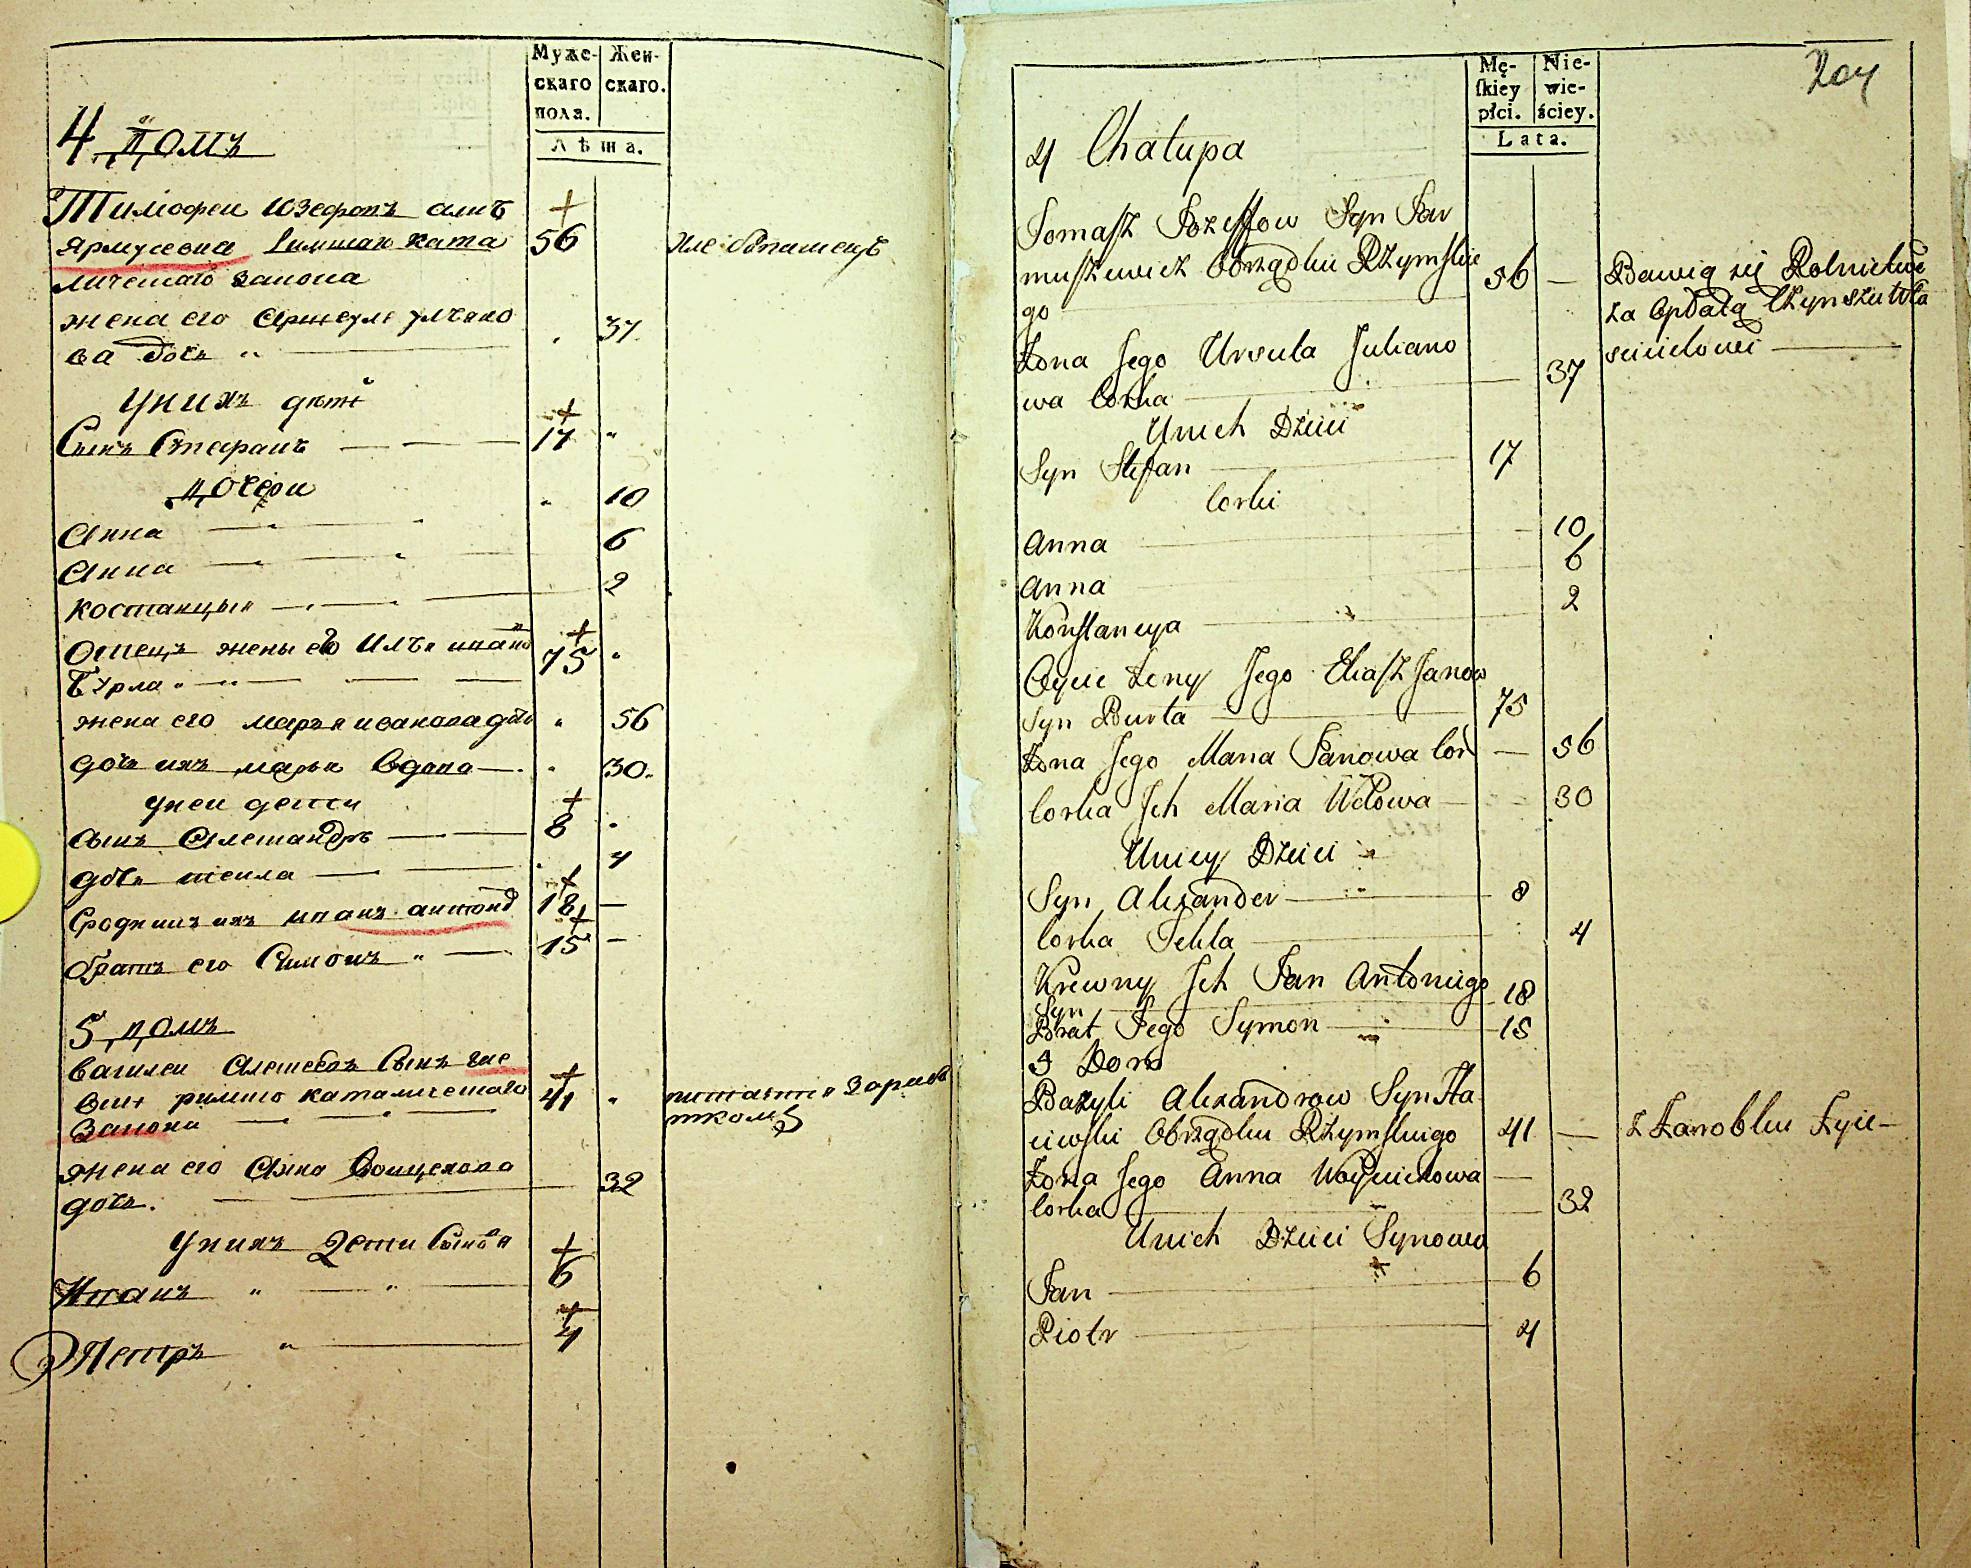 Муже-
скаго
пола.
Жен-
скаго.
Лѣта.
4 Домъ
Тимофеи Юзефовъ
56
Ярмусевиа Римшаго Ката
личешаго закона
жена его
37
ва дочь
Уних дѣти
Сынъ Стефанъ
17
дочери
Анна
10
Анна
6
Костанцыя
2
Отецъ жены его Илья
75
Бурла
жена его Марья иванова дочь
56
дочь ихъ Марья Вдова
30
унеи дети
сынъ Александръ
8
дочь текла
4
Сродникъ ихъ иванъ антоно
18
братъ его Симонъ
15
5 домъ
Василеи Алешевъ Сынъ
41
римшо католичешаго
закона
жена его Анна Воицехова
32
дочь.
Унихъ Дети Сыновя
Иванъ
6
Петръ
4
Mę-
skiey
płci.
Nie-
wie-
ściey.
Lata.
204
4 Chałupa
Tomasz Jozeffow Syn Jar
muszewicz Obrządku Rzymskie 56 — Bawią się Rolnictwe
go
za Opłatą Czynszu Wła
Żona Jego Ursula Juliano
scicielowi
wa Corka 37
Unich Dzieci
Syn Stefan 17
Corki
Anna 10
Anna 6
Konstancya 2
Oyciec Żeny Jego Eliasz Janow
Syn Burła 75
Żona Jego Maria Janowa Cor — 56
Corka Ich Maria Wdowa 30
Uniey Dzieci
Syn Alexander 8
Corka Tekla 4
Krewny Ich Jan Antoniego 18
Syn
Brat Jego Symon 15
5 Dom
Bazyli Alexandrow Syn
Obrządku Rzymskiego 41 — z Zarobku Żyie
Żona Jego Anna Woyciechowa —
Corka 32
Unich Dzieci Synowie
Jan 6
Piotr 4